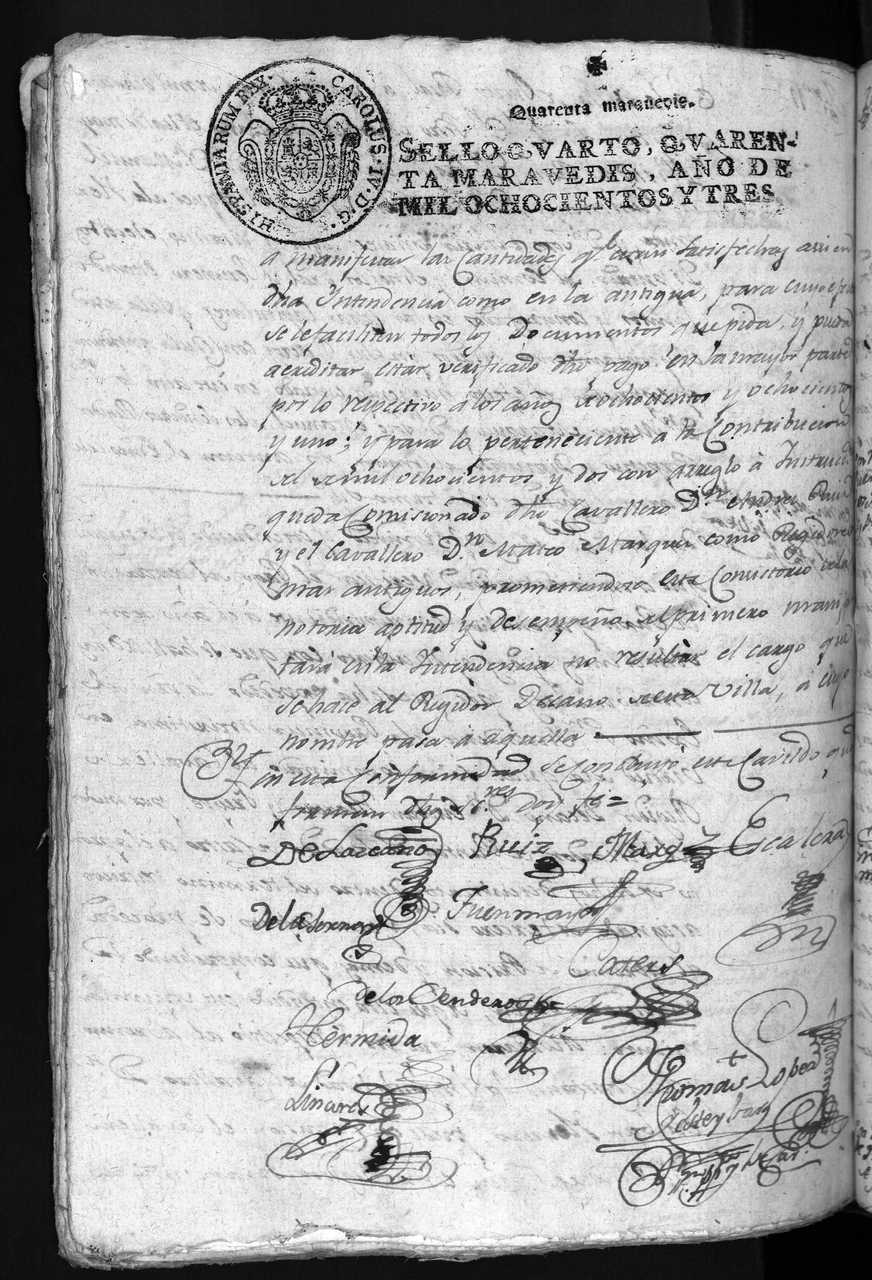 HISPANIARUM REX. CAROLUS. IV. D. G.
Quarenta marauedis.
SELLO QVARTO, QVAREN-
TA MARAVEDIS, AÑO DE
MIL OCHOCIENTOS Y TRES
a manifestar las Cantidades qe. estan satisfechas
dha Intendencia como en la antigua, para cuyo
se le faciliten todos los Documentos que pida, y pueda
acreditar estár verificado dho pago en la mayor parte
por lo respectivo a los años ochocientos y ochocientos
y uno; y para lo perteneciente á la Contribucion
mil ochocientos y dos con arreglo á
queda Comisionado dho Cavallero Dn. Andres Ruiz
y el Cavallero Dn. Mateo Marquez como Regidores
mas antiguos, prometiendose esta
notoria aptitud y desempeño, al primero
en la Intendencia no resultar el cargo que
se hace al Regidor Decano Villa, á cuyo
nombre pasa á aquella
en esta Conformidad se Concluyó este Cavildo que
firman dhos Sres. doy fe =
De Lazcano Ruiz Marqz Escalera
De la Fuenmayor
Caters
de los Cenderos
Hermida
Linares Thomas Lopez